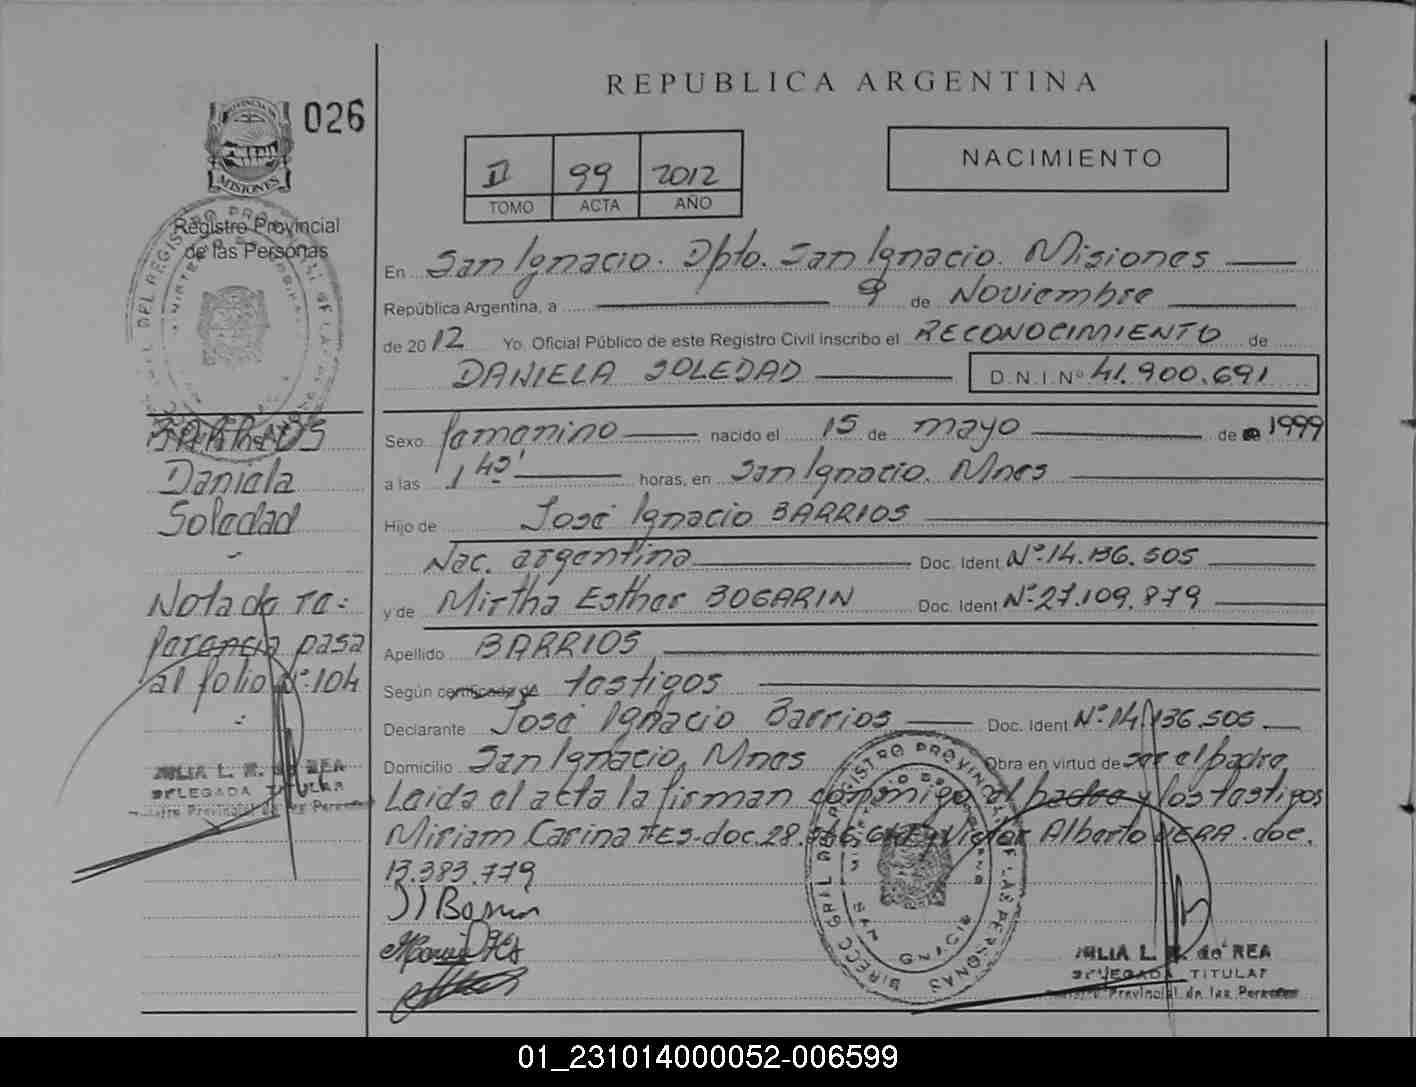 REPUBLICA ARGENTINA
026
MISIONES
Registro Provincial
de las Personas
II 99 2012
TOMO ACTA AÑO
NACIMIENTO
En San Ignacio. Dpto. San Ignacio. Misiones
República Argentina, a 9 de Noviembre
de 2012 Yo. Oficial Público de este Registro Civil Inscribo el RECONOCIMIENTO de
DANIELA SOLEDAD D.N.I.Nº 41.900.691
BARRIOS
Daniela
Soledad
Sexo femenino nacido el 15 de mayo de 1999
a las 1 45' horas, en San Ignacio. Mnes
Hijo de José Ignacio BARRIOS
Nac. argentina Doc. Ident Nº 14.136.505
y de Mirtha Esther BOGARIN Doc. Ident Nº 27.109.879
Apellido BARRIOS
Según certificado de testigos
Declarante José Ignacio Barrios Doc. Ident Nº 14.136.505
Domicilio San Ignacio. Mnes Obra en virtud de ser el padre
Leida el acta la firman conmigo el padre y los testigos
Miriam Carina doc. 28. y Victor Alberto VERA. doc.
13.383.779
Nota de re=
ferencia pasa
al folio Nº 104
JULIA L. R. de REA
DELEGADA TITULAR
Registro Provincial de las Personas
DIRECC GRAL DEL REGISTRO PROVINCIAL DE LAS PERSONAS
SAN IGNACIO
JULIA L. R. de REA
DELEGADA TITULAR
Registro Provincial de las Personas
01_231014000052-006599